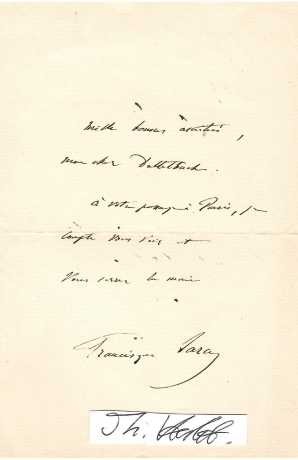 Mille bonnes amitiés,
mon cher Dallebach.
à votre passage à Paris, je
compte vous voir et
vous serrer la main
Francisque Sarcey
Th.